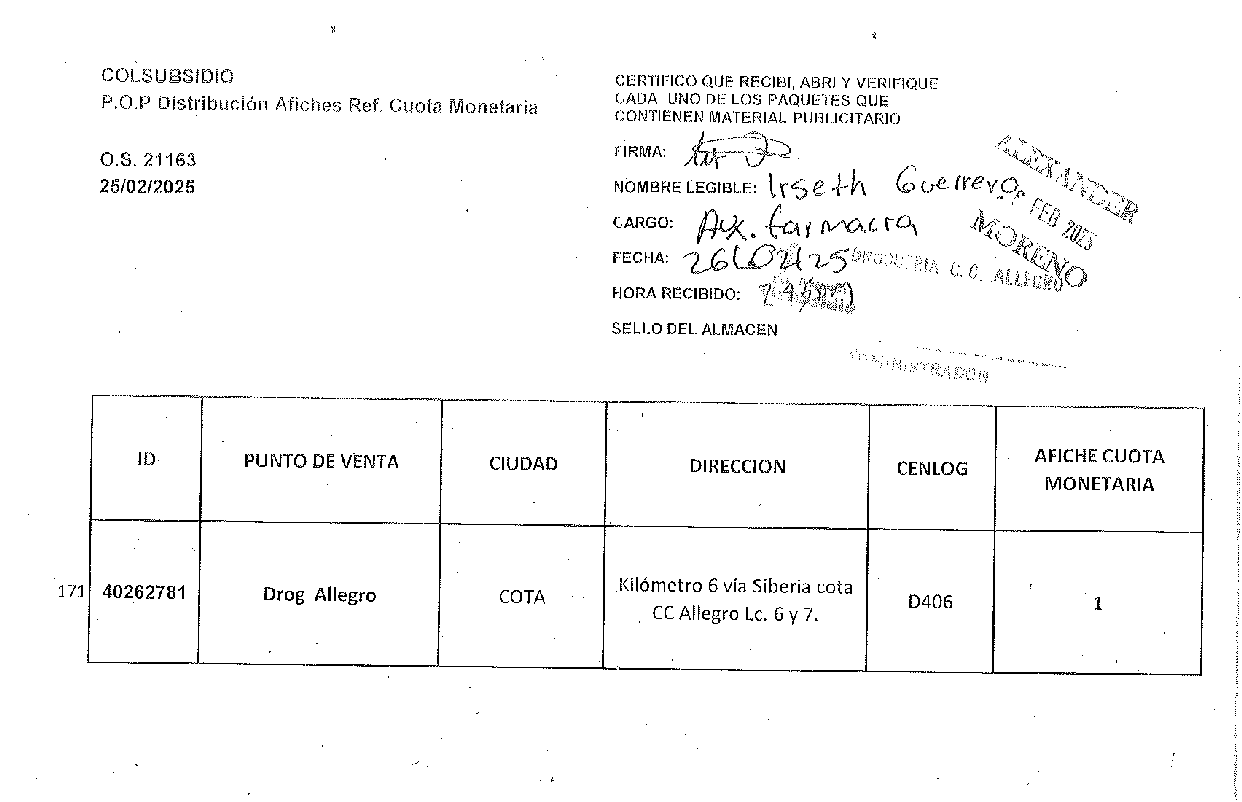 COLSUBSIDIO
P.O.P Distribución Afiches Ref. Cuota Monetaria
O.S. 21163
25/02/2025
CERTIFICO QUE RECIBI, ABRI Y VERIFIQUE
CADA UNO DE LOS PAQUETES QUE
CONTIENEN MATERIAL PUBLICITARIO
FIRMA:
NOMBRE LEGIBLE: Irseth Guerrero
CARGO: Aux. farmacia
FECHA: 26/02/25
HORA RECIBIDO:
SELLO DEL ALMACEN
ALEXANDER
FEB 2025
MORENO
DROGUERIA C.C. ALLEGRO
ADMINISTRADOR
ID PUNTO DE VENTA CIUDAD DIRECCION CENLOG AFICHE CUOTA
MONETARIA
171 40262781 Drog Allegro COTA Kilómetro 6 vía Siberia cota
CC Allegro Lc. 6 y 7. D406 1